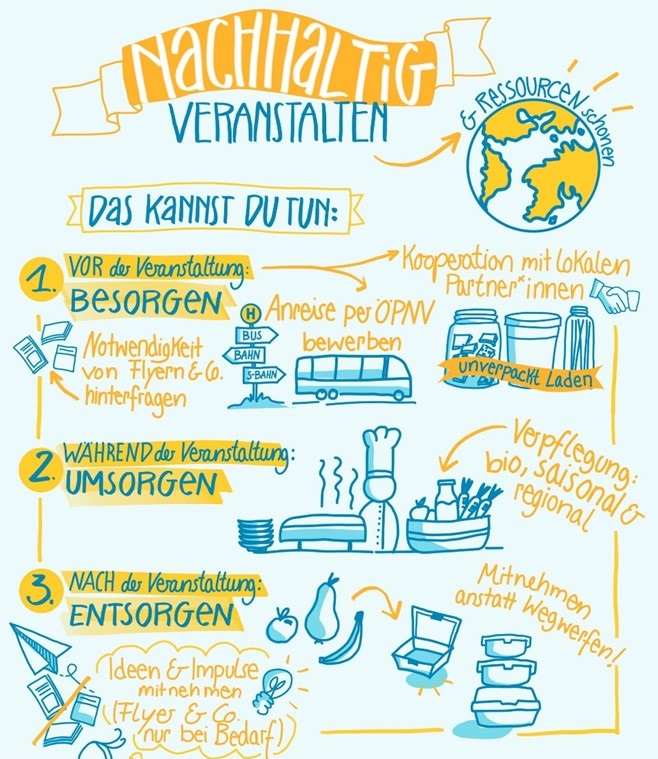 NACHHALTIG
VERANSTALTEN
& RESSOURCEN schonen
DAS KANNST DU TUN:
1. VOR der Veranstaltung:
BESORGEN
Kooperation mit lokalen
Partner*innen
Anreise per ÖPNV
bewerben
H
BUS
BAHN
S-BAHN
Notwendigkeit
von Flyern & Co.
hinterfragen
unverpackt Laden
2. WÄHREND der Veranstaltung:
UMSORGEN
Verpflegung:
bio, saisonal &
regional
3. NACH der Veranstaltung:
ENTSORGEN
Mitnehmen
anstatt Wegwerfen!
Ideen & Impulse
mitnehmen
(Flyer & Co.
nur bei Bedarf)